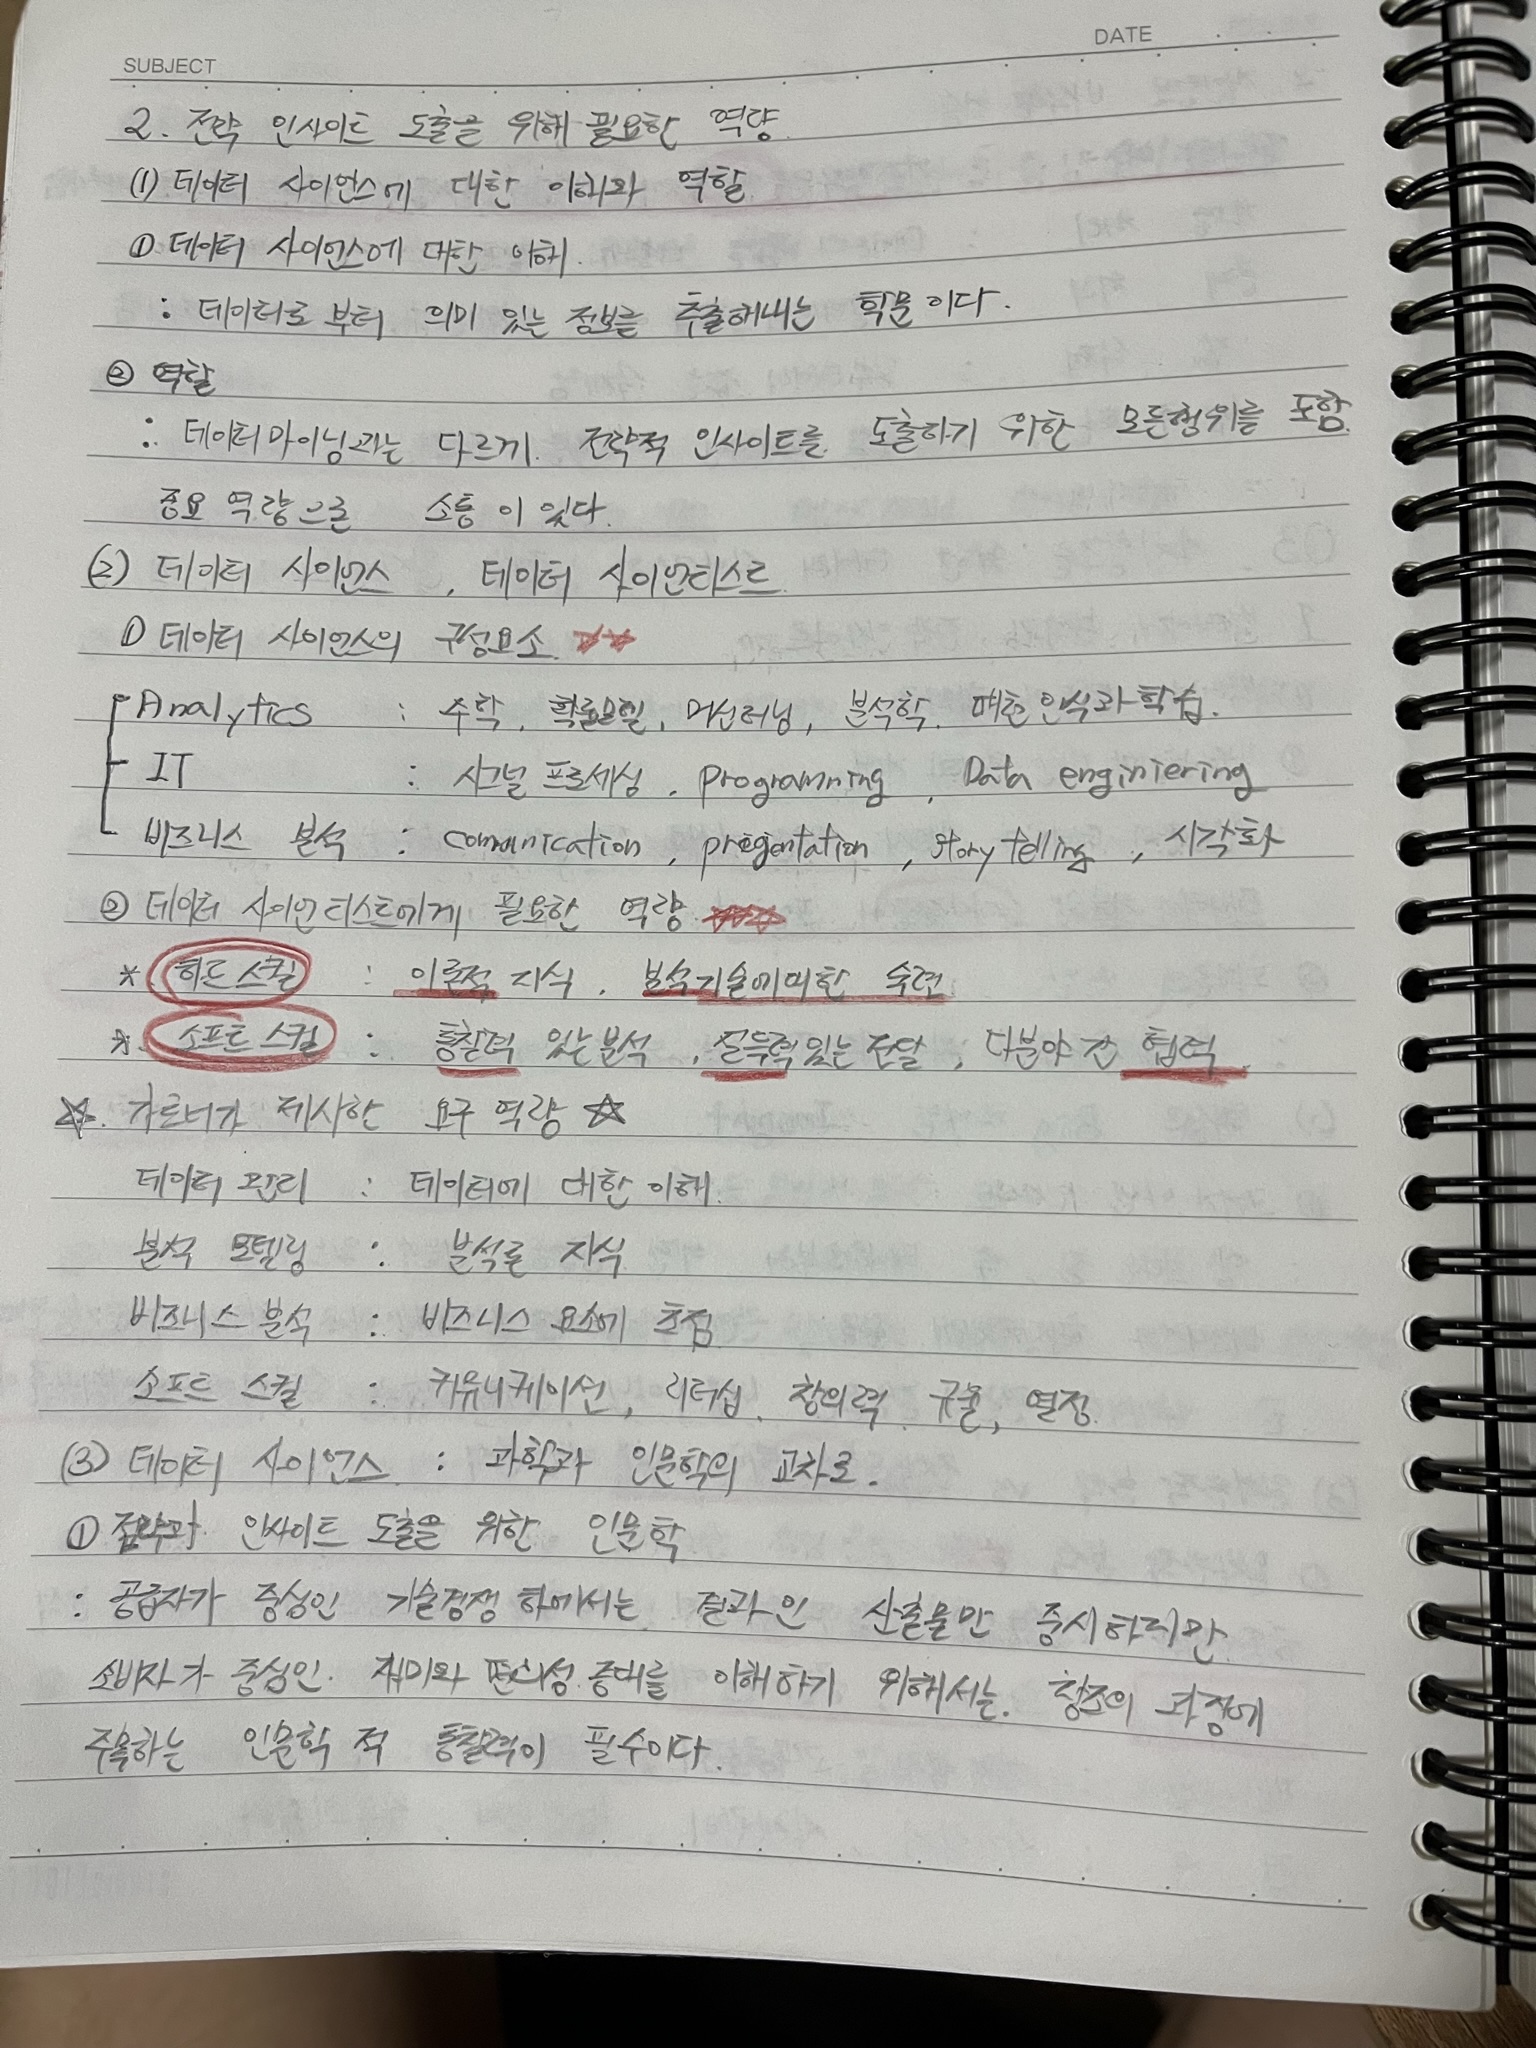 DATE
SUBJECT
2. 전략 인사이트 도출을 위해 필요한 역량.
(1) 데이터 사이언스에 대한 이해와 역할.
① 데이터 사이언스에 대한 이해.
: 데이터로 부터 의미 있는 정보를 추출해내는 학문이다.
② 역할
: 데이터마이닝과는 다르게. 전략적 인사이트를 도출하기 위한 모든행위를 포함.
중요 역량으론 소통이 있다.
(2) 데이터 사이언스, 데이터 사이언티스트.
① 데이터 사이언스의 구성요소. ☆☆
Analytics : 수학, 확률모델, 머신러닝, 분석학. 패턴 인식과 학습.
IT : 시그널 프로세싱, programming, Data enginiering
비즈니스 분석 : comunication, story telling, 시각화
② 데이터 사이언티스트에게 필요한 역량. ☆☆☆
* 하드 스킬 : 이론적 지식, 분석기술에대한 숙련
* 소프트 스킬 : 통찰력 있는 분석, 설득력있는 전달, 다분야 간 협력.
☆. 가트너가 제시한 요구 역량 ☆
데이터 관리 : 데이터에 대한 이해.
분석 모델링 : 분석론 지식
비즈니스 분석 : 비즈니스 요소에 초점
소프트 스킬 : 커뮤니케이션, 리더십. 창의력. 규율, 열정.
(3) 데이터 사이언스 : 과학과 인문학의 교차로.
① 인사이트 도출을 위한 인문학
: 공급자가 중심인 기술경쟁 하에서는 결과인 산출물만 중시하지만.
소비자가 중심인. 재미와 편의성 증대를 이해하기 위해서는. 창조의 과정에
주목하는 인문학 적 통찰력이 필수이다.